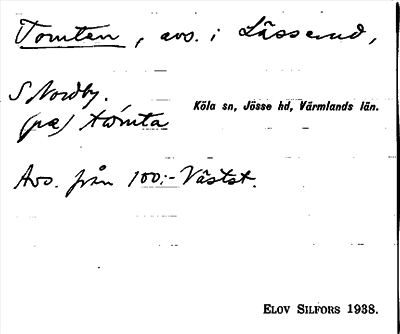 Tomten, avs. i Lässerud,
S Nordby.
Köla sn, Jösse hd, Värmlands län.
(på) tωmta
Avs. från 100:- Västst.
ELOV SILFORS 1938.